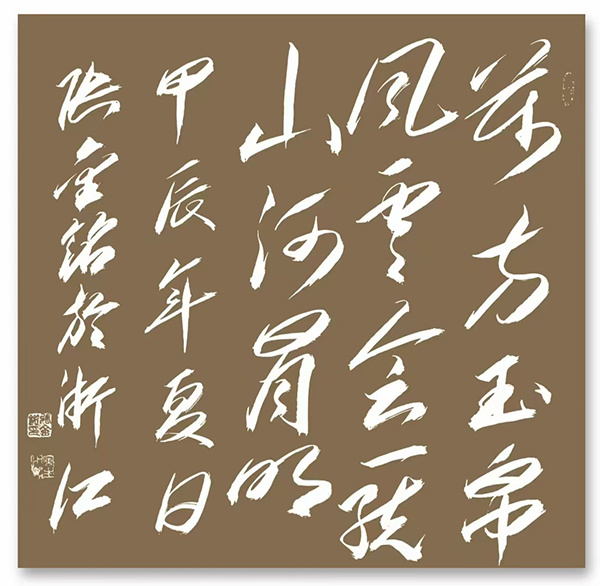 萬方玉帛
風雲會一統
山河日月明
甲辰年夏日
張金銘於浙江